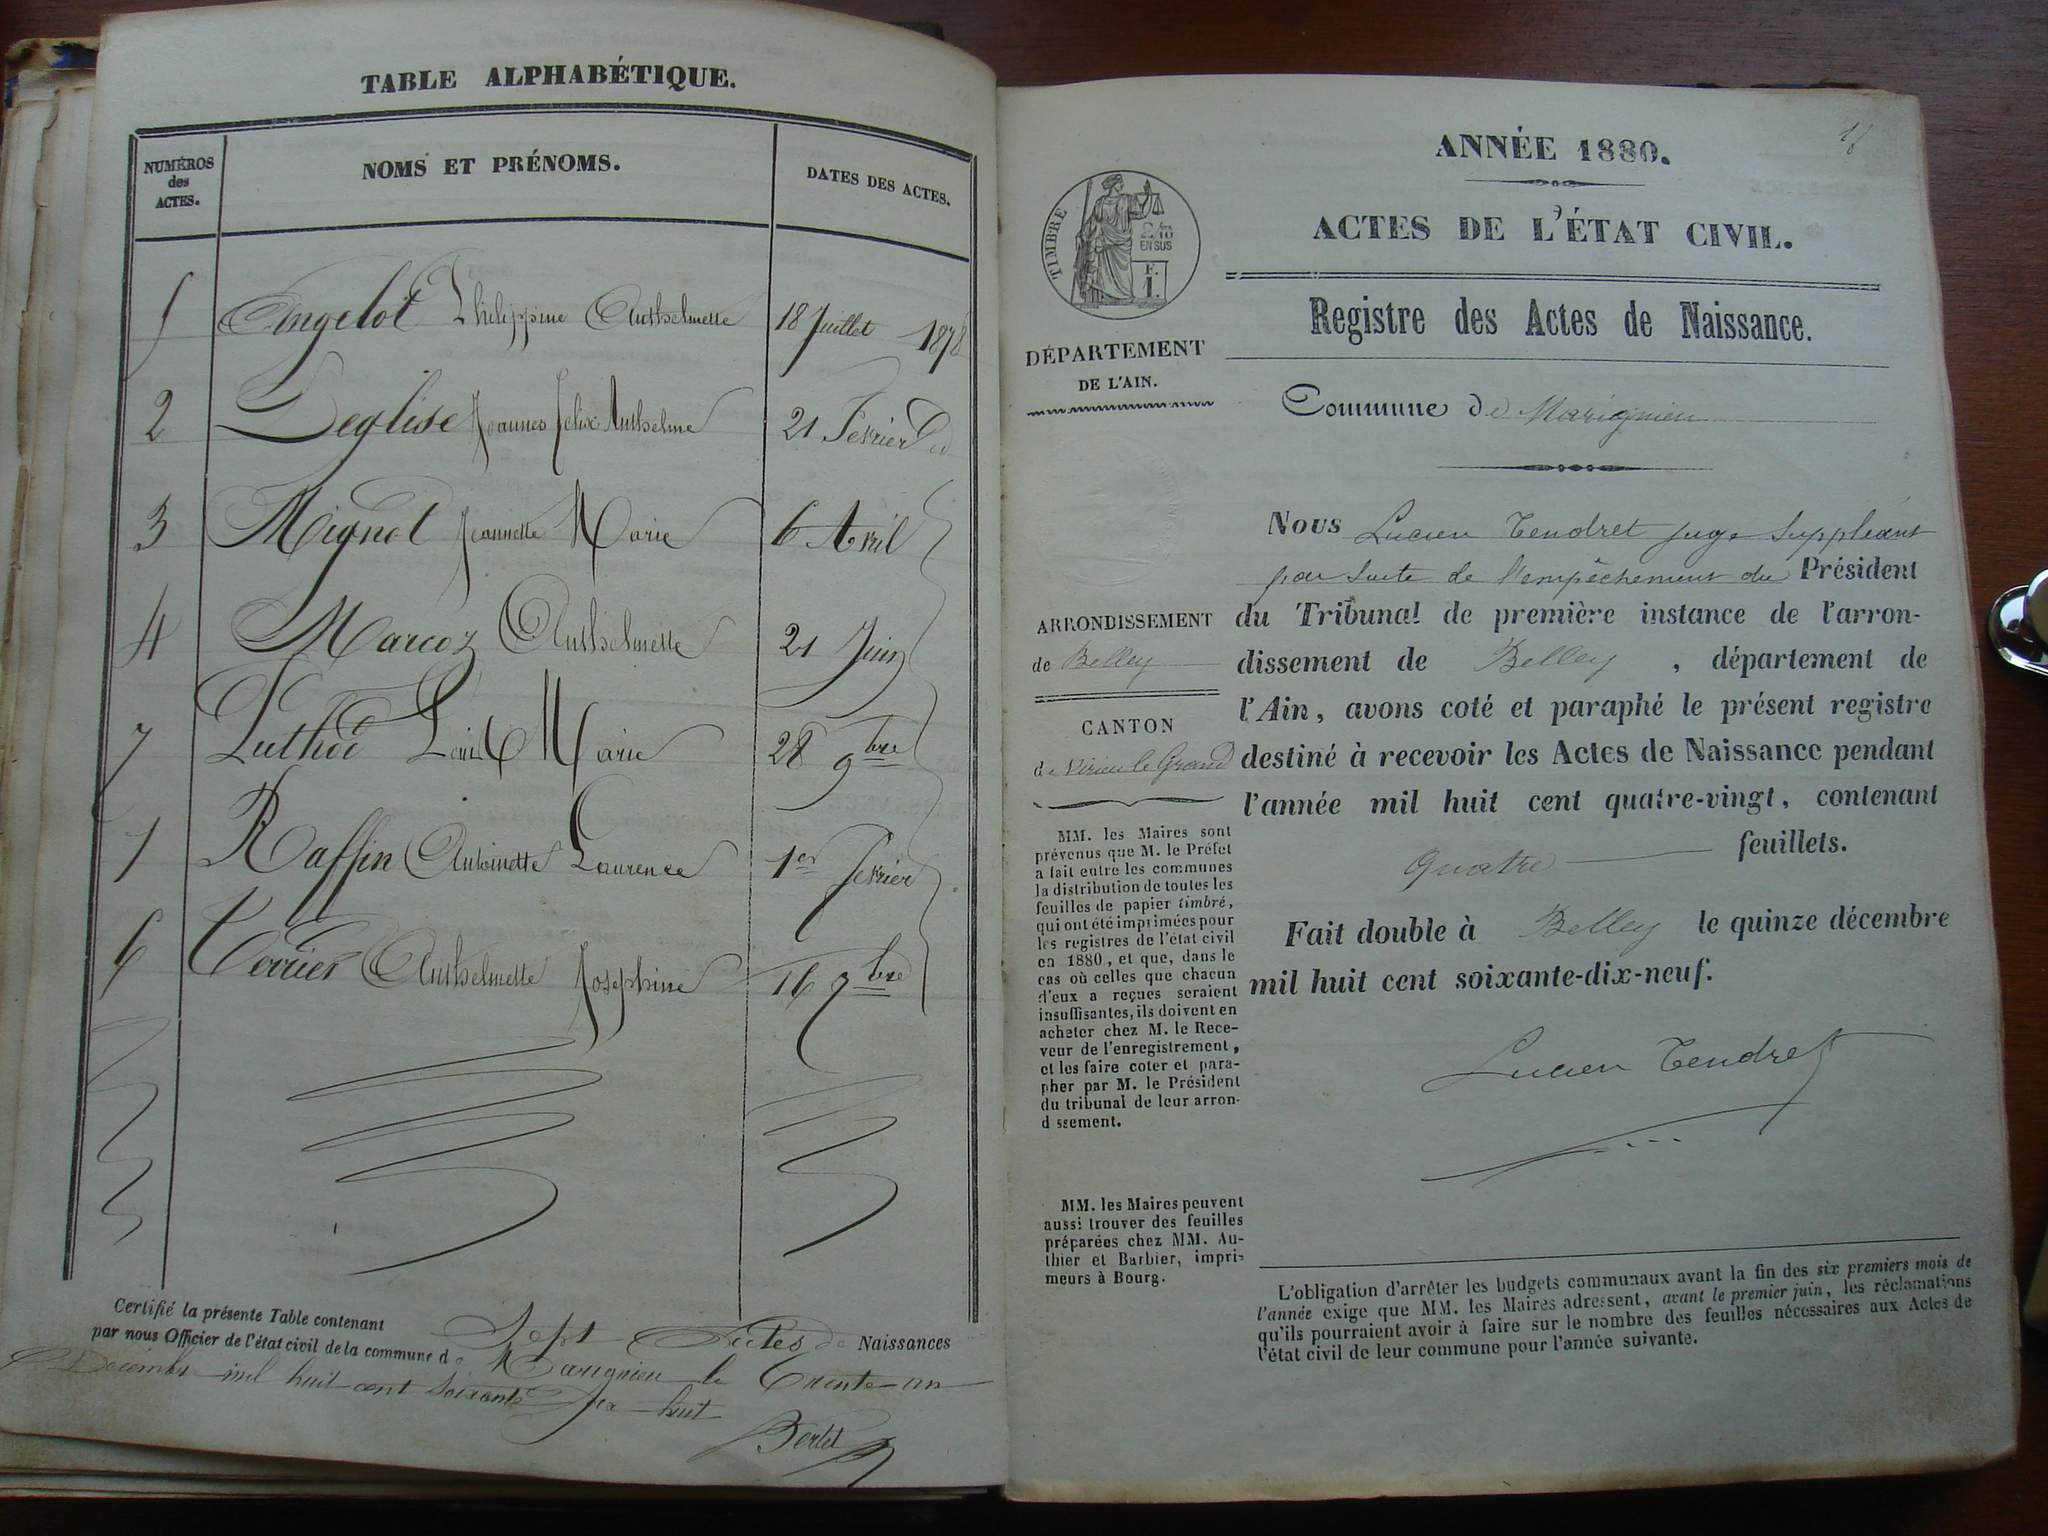 TABLE ALPHABÉTIQUE.
NUMÉROS
des
ACTES.
NOMS ET PRÉNOMS.
DATES DES ACTES.
5 Angelot Philippine Anthelmette 18 Juillet 1878
2 Deglise Joannes Felix Anthelme 21 Fevrier
3 Mignot Jeannette Marie 6 Avril
4 Marcoz Anthelmette 21 Juin
7 Marie 28 9bre
1 Raffin Antoinette Laurence 1er Fevrier
6 Terrier Anthelmette Josephine 16 7bre
Certifié la présente Table contenant Sept Actes de Naissances
par nous Officier de l'état civil de la commune de Marignieu le Trente-un
Décembre mil huit cent soixante dix-huit
18
ANNÉE 1880.
ACTES DE L'ÉTAT CIVIL.
Registre des Actes de Naissance.
TIMBRE
2/10
EN SUS
F.
1.
DÉPARTEMENT
DE L'AIN.
Commune de Marignieu
Nous Lucien Tendret juge suppléant
par suite de l'empêchement du Président
du Tribunal de première instance de l'arron-
dissement de Belley, département de
l'Ain, avons coté et paraphé le présent registre
destiné à recevoir les Actes de Naissance pendant
l'année mil huit cent quatre-vingt, contenant
quatre feuillets.
Fait double à Belley le quinze décembre
mil huit cent soixante-dix-neuf.
Lucien Tendret
ARRONDISSEMENT
de Belley
CANTON
de Virieu le Grand
MM. les Maires sont
prévenus que M. le Préfet
a fait entre les communes
la distribution de toutes les
feuilles de papier timbré,
qui ont été imprimées pour
les registres de l'état civil
en 1880, et que, dans le
cas où celles que chacun
d'eux a reçues seraient
insuffisantes, ils doivent en
acheter chez M. le Rece-
veur de l'enregistrement,
et les faire coter et para-
pher par M. le Président
du tribunal de leur arron-
dissement.
MM. les Maires peuvent
aussi trouver des feuilles
préparées chez MM. Au-
thier et Barbier, impri-
meurs à Bourg.
L'obligation d'arrêter les budgets communaux avant la fin des six premiers mois de
l'année exige que MM. les Maires adressent, avant le premier juin, les réclamations
qu'ils pourraient avoir à faire sur le nombre des feuilles nécessaires aux Actes de
l'état civil de leur commune pour l'année suivante.